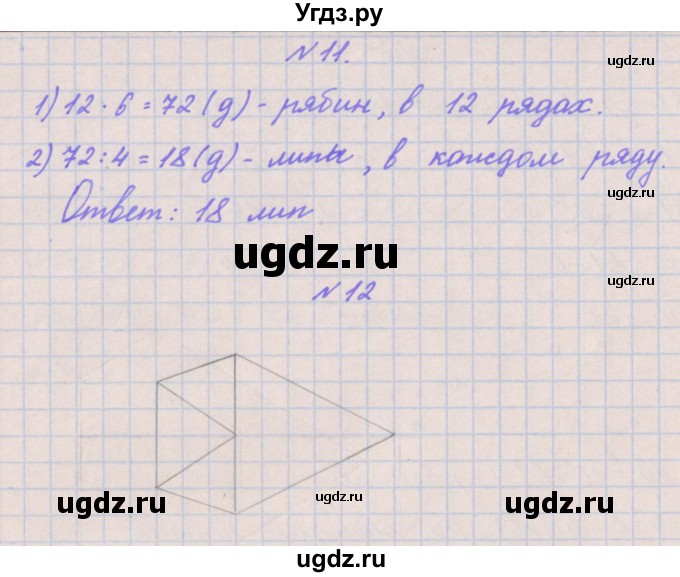 Угдз.ру
N 11.
ugdz.ru
1) 12 · 6 = 72 (д) - рябин, в 12 рядах.
ugdz.ru
2) 72 : 4 = 18 (д) - липы, в каждом ряду.
ugdz.ru
Ответ: 18 лип
ugdz.ru
ugdz.ru
N 12
ugdz.ru
ugdz.ru
ugdz.ru
ugdz.ru